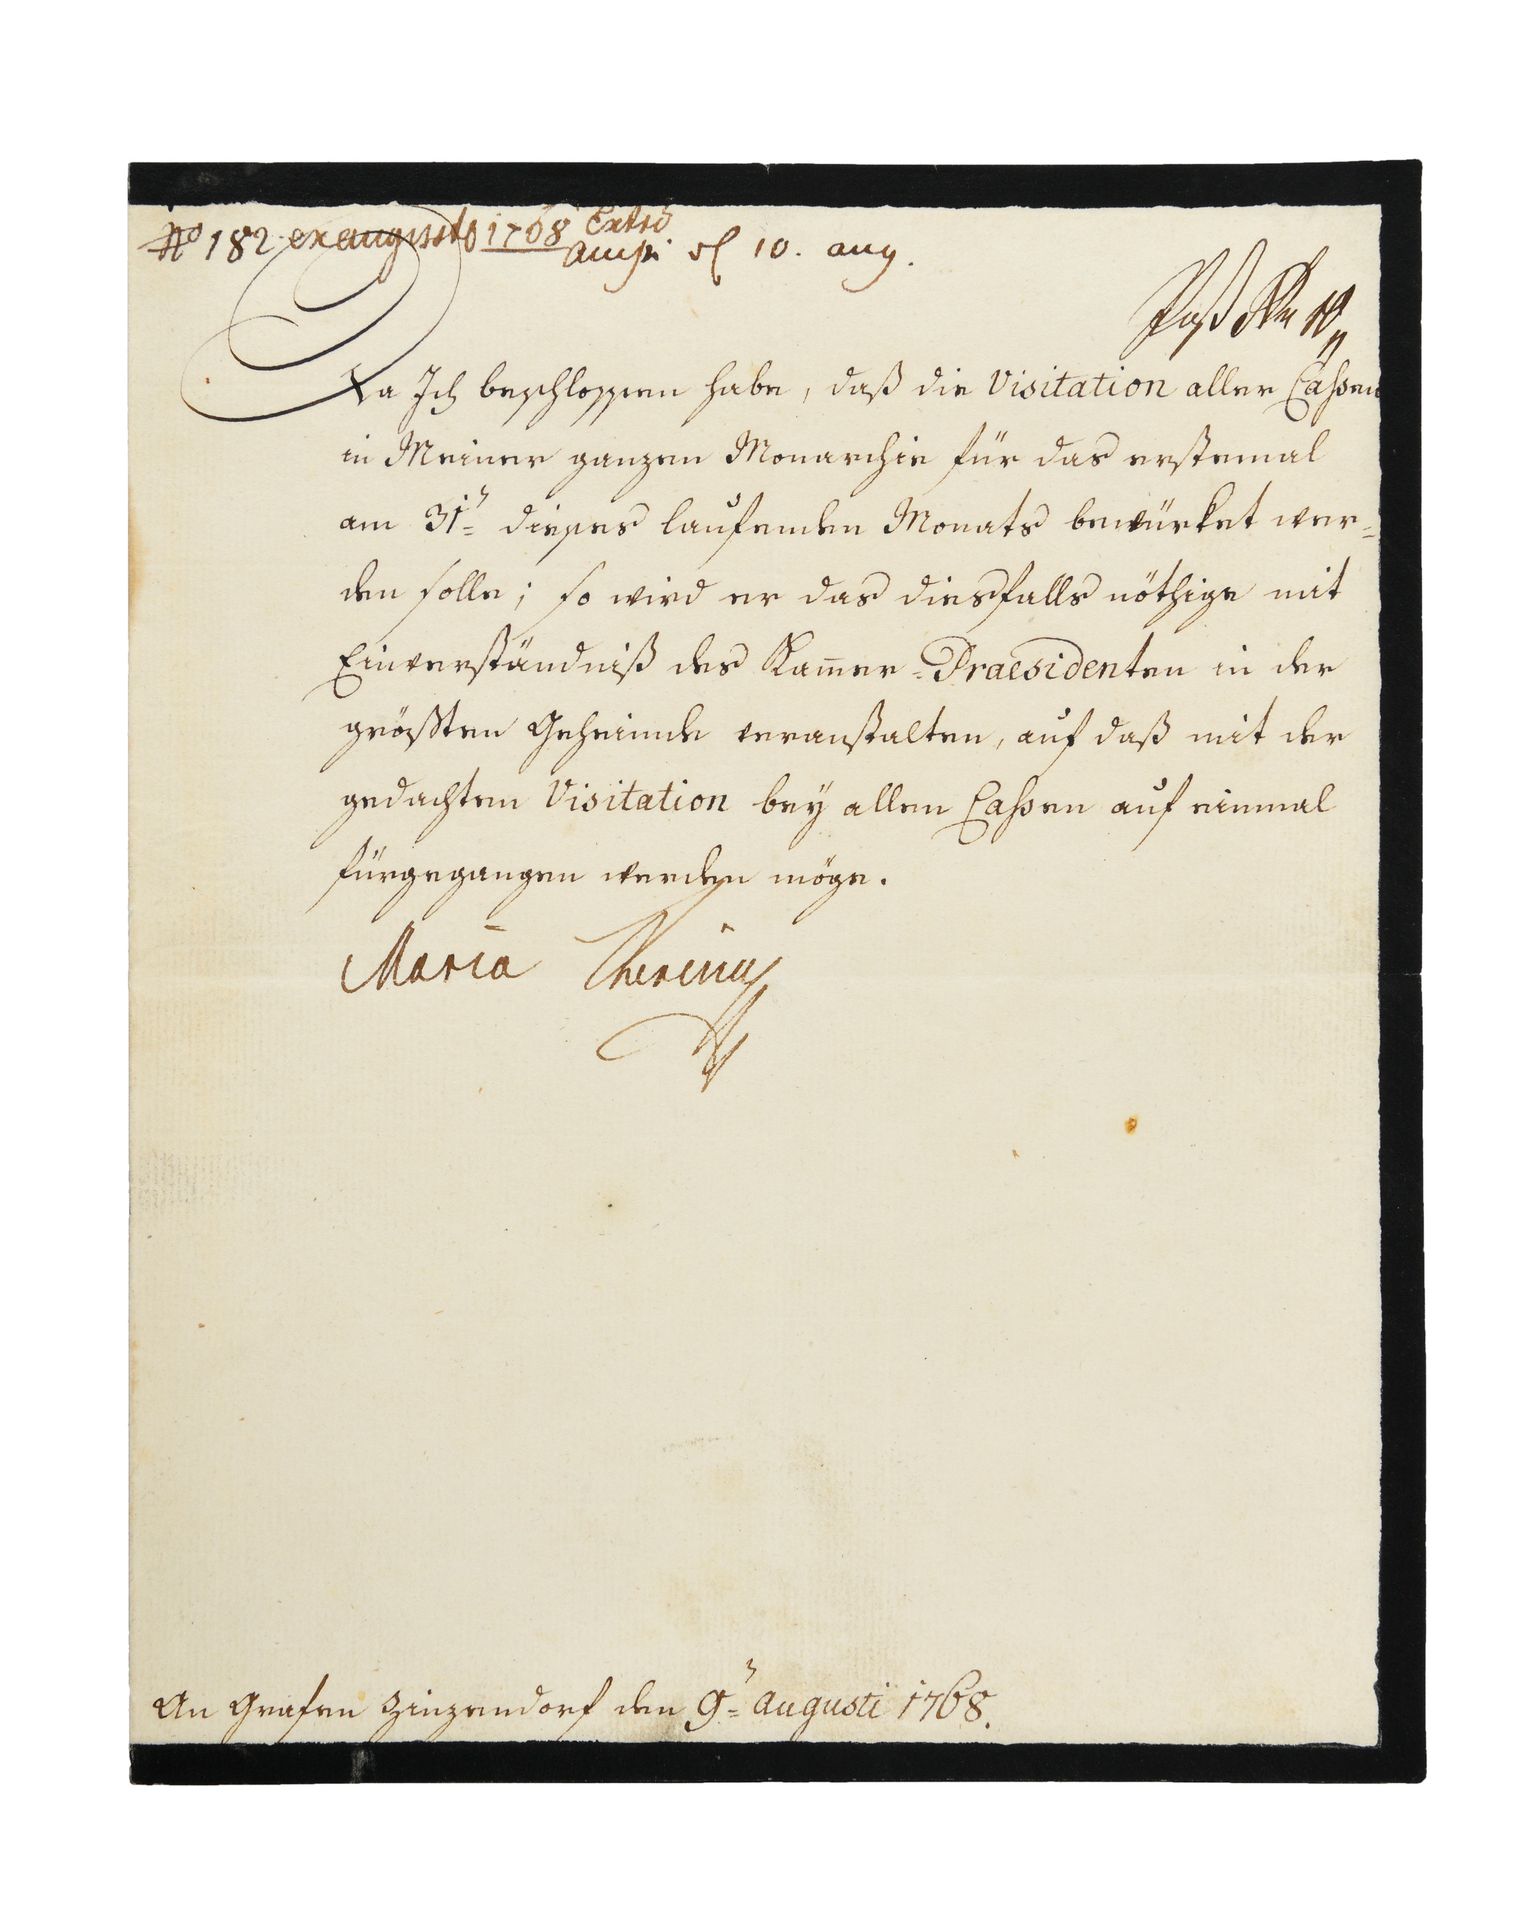 No 182 ex augusto 1768
10. aug.
Da Ich beschlossen habe, daß die Visitation aller Cassen
in Meiner ganzen Monarchie für das erstemal
am 31ten dieses laufenden Monats bewürket wer-
den solle; so wird er das diesfalls nöthige mit
Einverständniß des Kam̄er-Praesidenten in der
größten Geheimde veranstalten, auf daß mit der
gedachten Visitation bey allen Cassen auf einmal
fürgegangen werden möge.
Maria Theresia
An Grafen Zinzendorf den 9ten Augusti 1768.